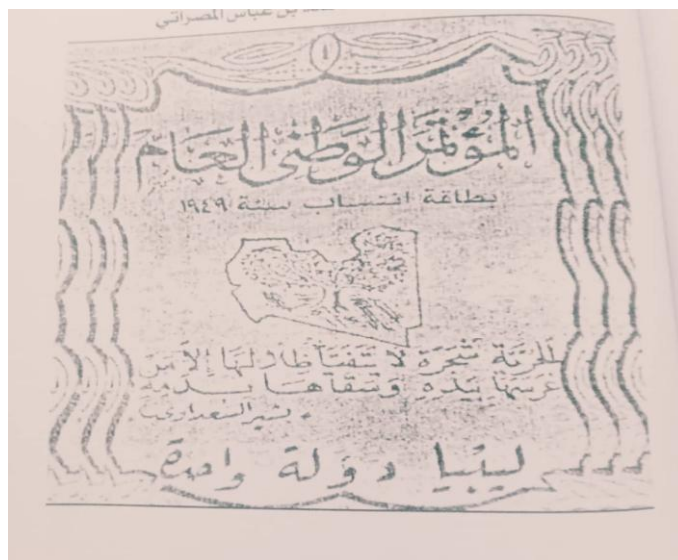 بن عباس المصراتي
١
المؤتمر الوطني العام
بطاقة انتساب سنة ١٩٤٩
الحرية شجرة لا يتفيأ ظلالها إلا من
غرسها بيده وسقاها بدمه
بشير السعداوي
ليبيا دولة واحدة